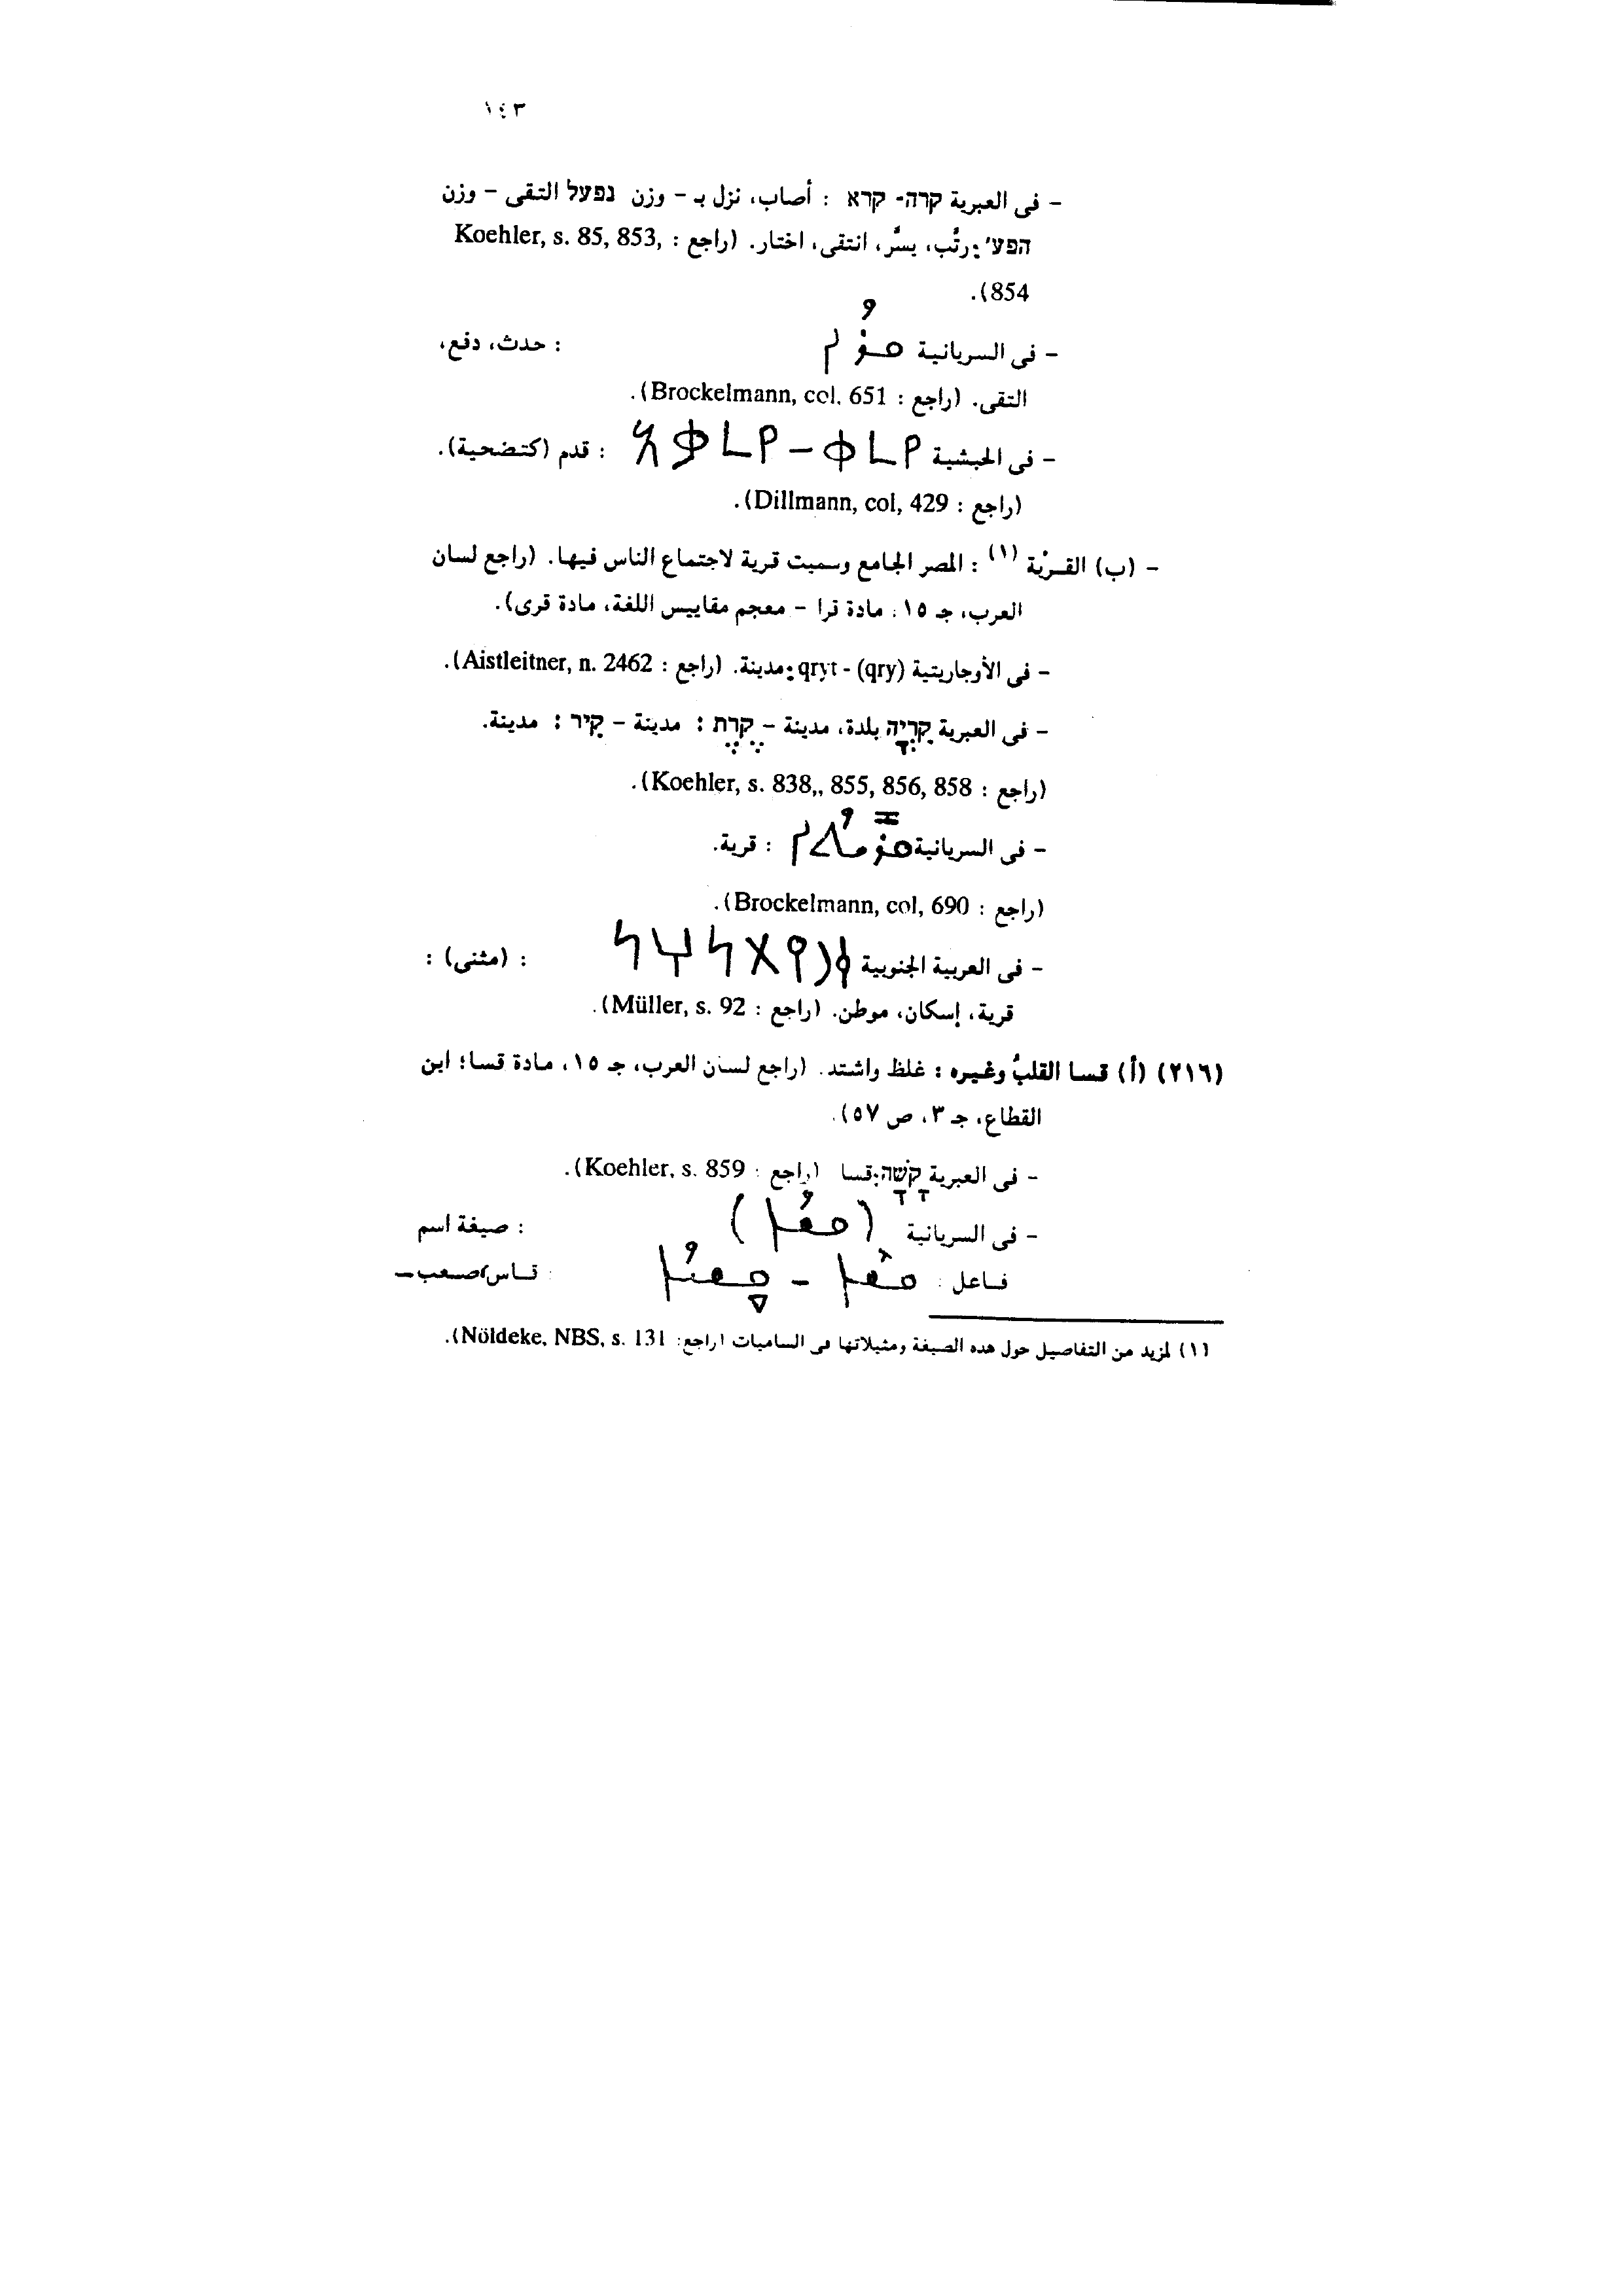 ١٤٣
- فى العبرية קרה- קרא : أصاب، نزل بـ - وزن נפעל التقى - وزن
הפע׳: رتَّب، يسَّر، انتقى، اختار. (راجع : Koehler, s. 85, 853,
854).
- فى السريانية : حدث، دفع،
التقى. (راجع : Brockelmann, col. 651).
- فى الحبشية : قدم (كتضحية).
(راجع : Dillmann, col, 429).
- (ب) القـرْية (١) : المصر الجامع وسميت قرية لاجتماع الناس فيها. (راجع لسان
العرب، جـ ١٥، مادة قرا - معجم مقاييس اللغة، مادة قرى).
- فى الأوجاريتية qryt - (qry): مدينة. (راجع : Aistleitner, n. 2462).
- فى العبرية קִרְיָה بلدة، مدينة - קֶרֶת : مدينة - קִיר : مدينة.
(راجع : Koehler, s. 838,, 855, 856, 858).
- فى السريانية : قرية.
(راجع : Brockelmann, col, 690).
- فى العربية الجنوبية 𐩤𐩧𐩺𐩩𐩬𐩠𐩬 : (مثنى) :
قرية، إسكان، موطن. (راجع : Müller, s. 92).
(٢١٦) (أ) قسا القلبُ وغيره : غلظ واشتد. (راجع لسان العرب، جـ ١٥، مادة قسا؛ ابن
القطاع، جـ ٣، ص ٥٧).
- فى العبرية קָשָׁה: قسا (راجع : Koehler, s. 859).
- فى السريانية (ܩܫܐ) : صيغة اسم
فاعل : ܩܫܐ - ܩܫܝܐ : قـاس، صـعب-
(١) لمزيد من التفاصيل حول هذه الصيغة ومثيلاتها فى الساميات (راجع: Nöldeke, NBS, s. 131).